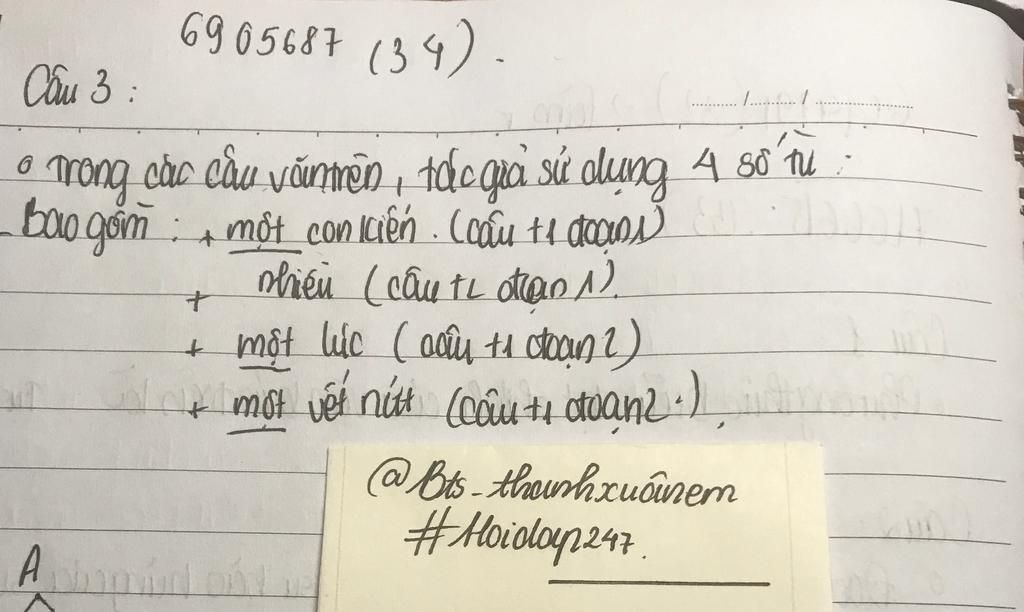 6905687 (34).
Câu 3 :
o Trong các câu văn trên, tác giả sử dụng 4 số từ :
- Bao gồm : + một con kiến. (câu t1 đoạn 1)
+ nhiều (câu t2 đoạn 1).
+ một lúc (câu t1 đoạn 2)
+ một vết nứt (câu t1 đoạn 2.),
@Bts_thanhxuânem
#Hoidap247.
A